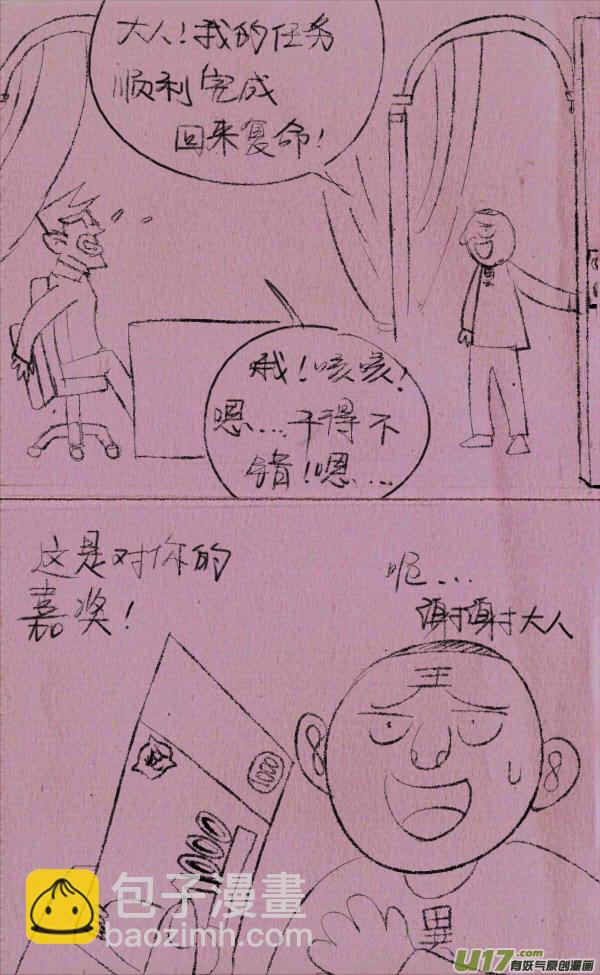 大人！我的任务
顺利完成
回来复命！
哦！咳咳！
嗯....干得不
错！嗯....
这是对你的
嘉奖！
呃....
谢谢大人
王
1000
1000
異
包子漫畫
baozimh.com
U17.com
有妖气原创漫画